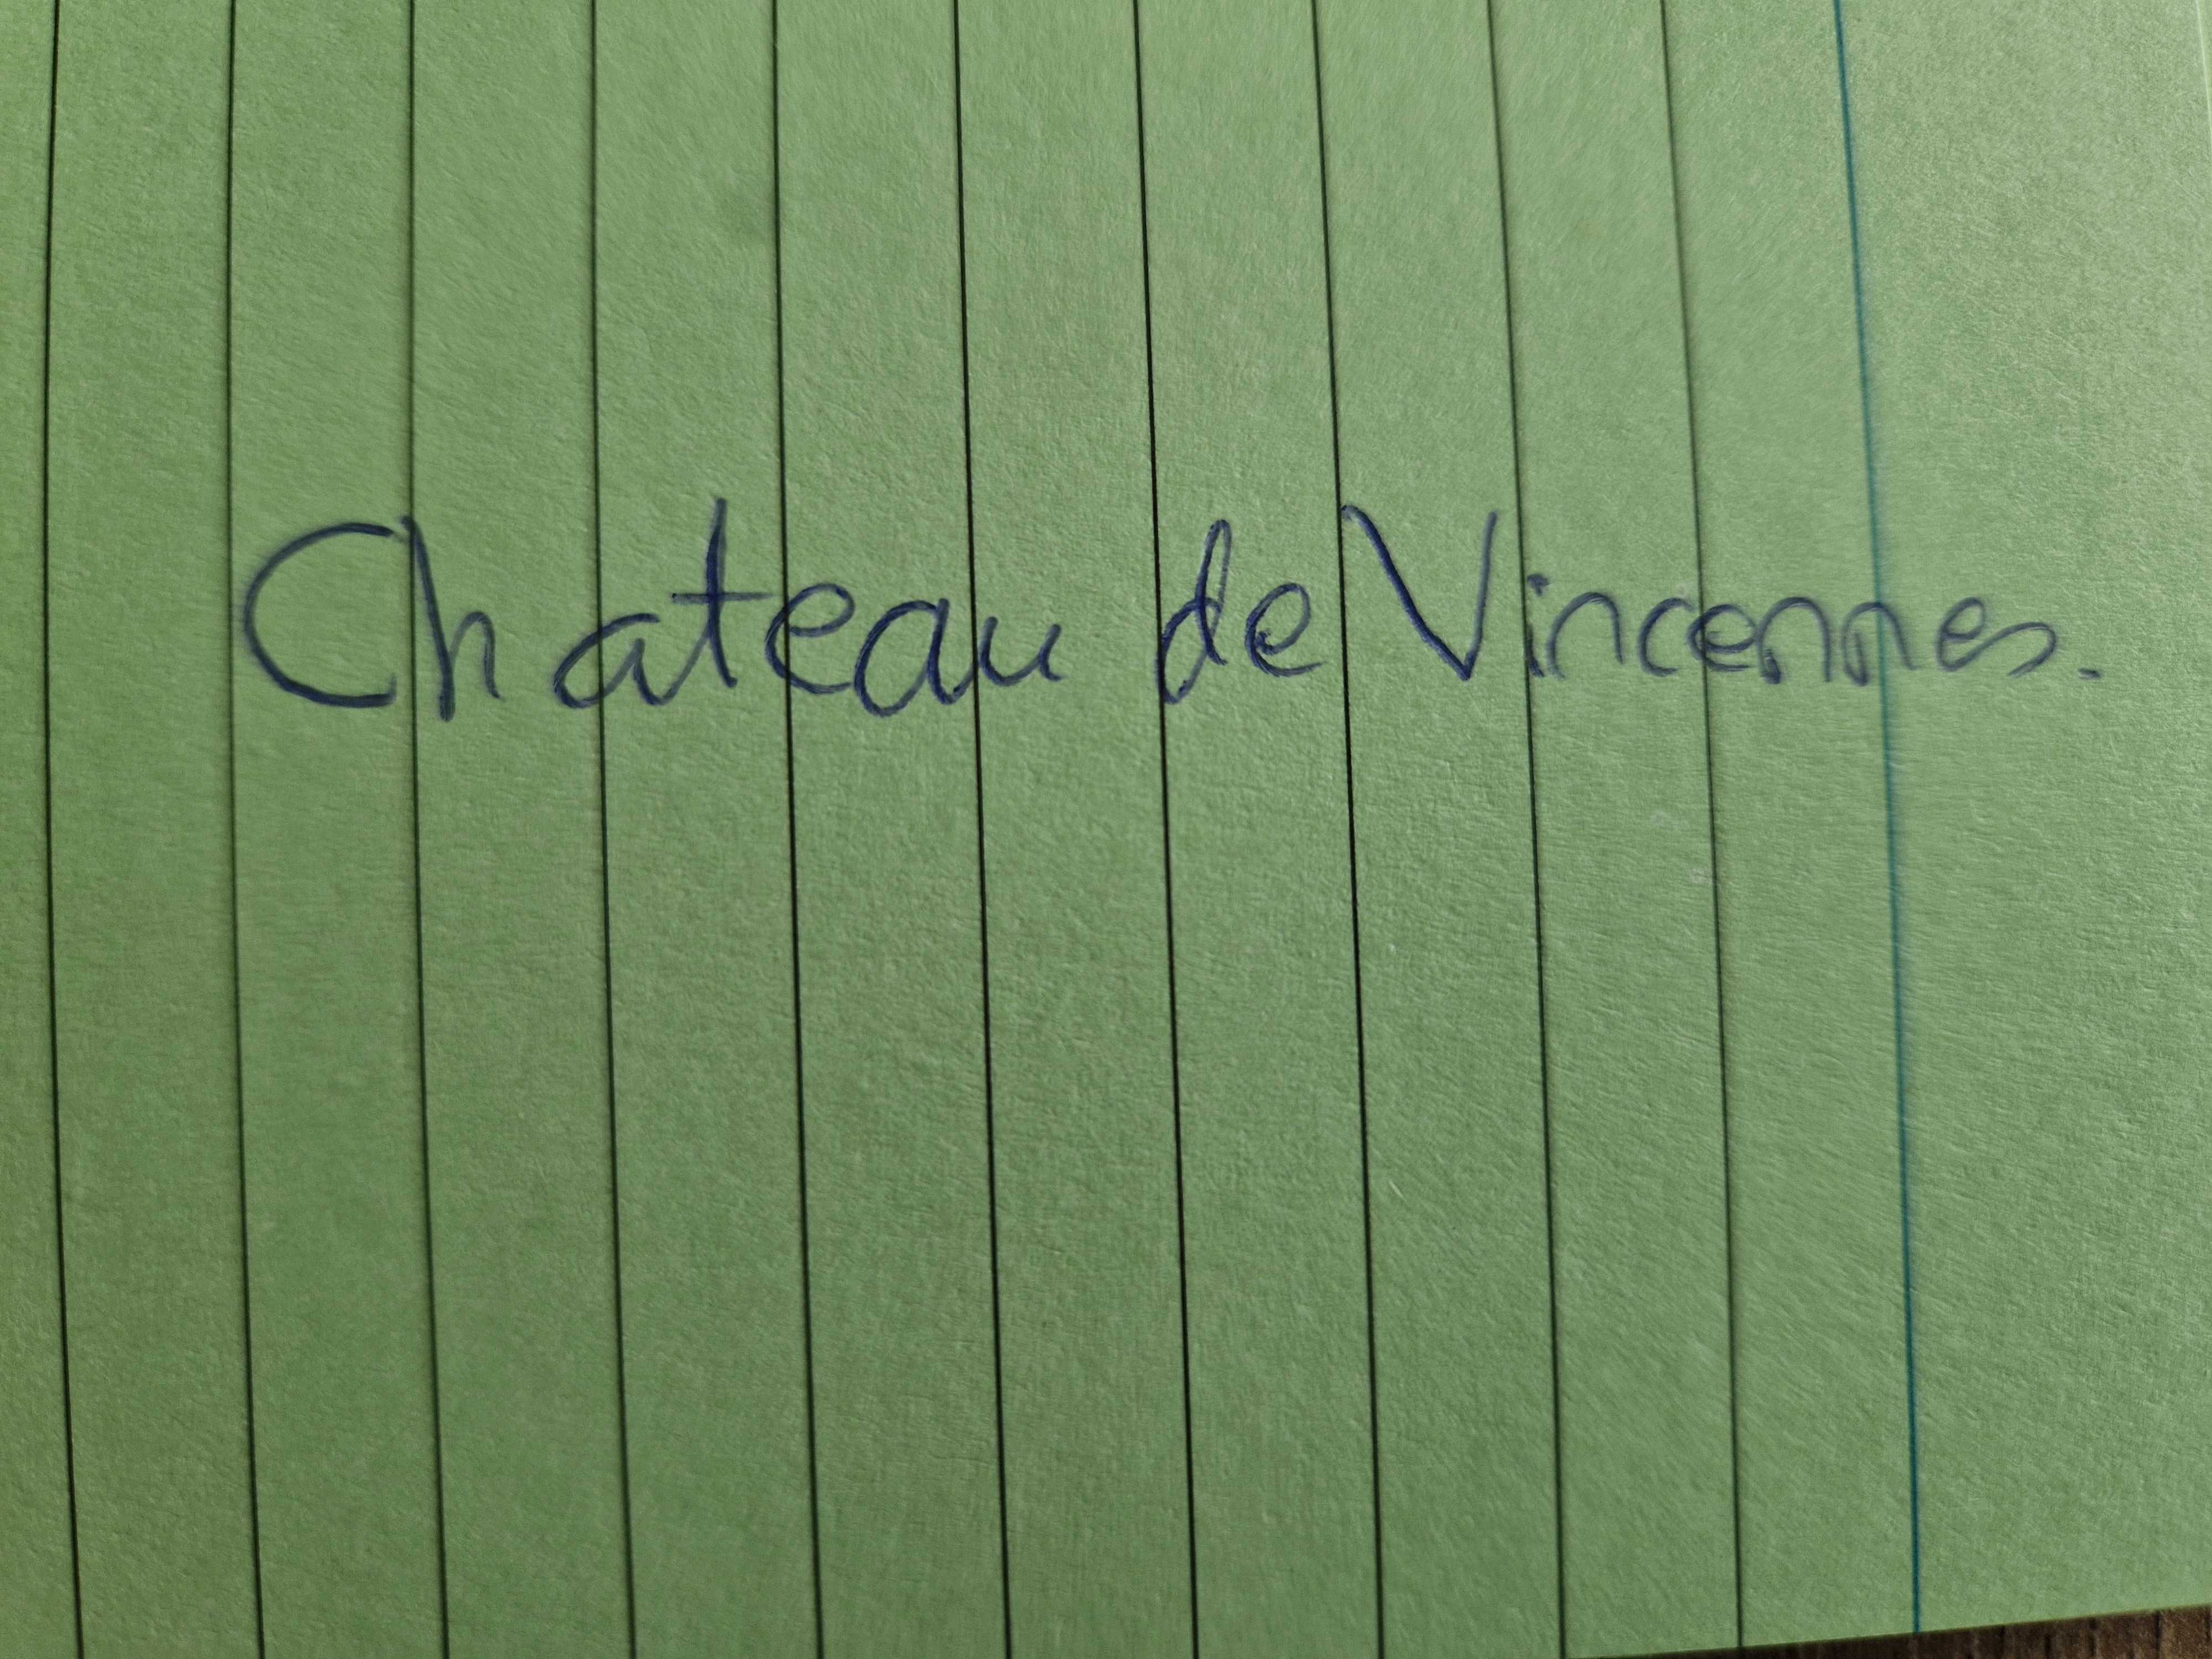 Chateau de Vincennes.